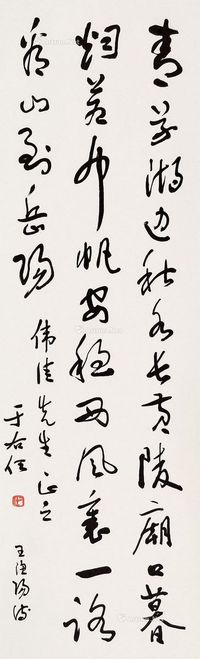 青草湖边秋水长黄陵庙口暮
烟苍布帆安稳西风里一路
看山到岳阳
伟佳先生正之
于右任
王渔阳诗